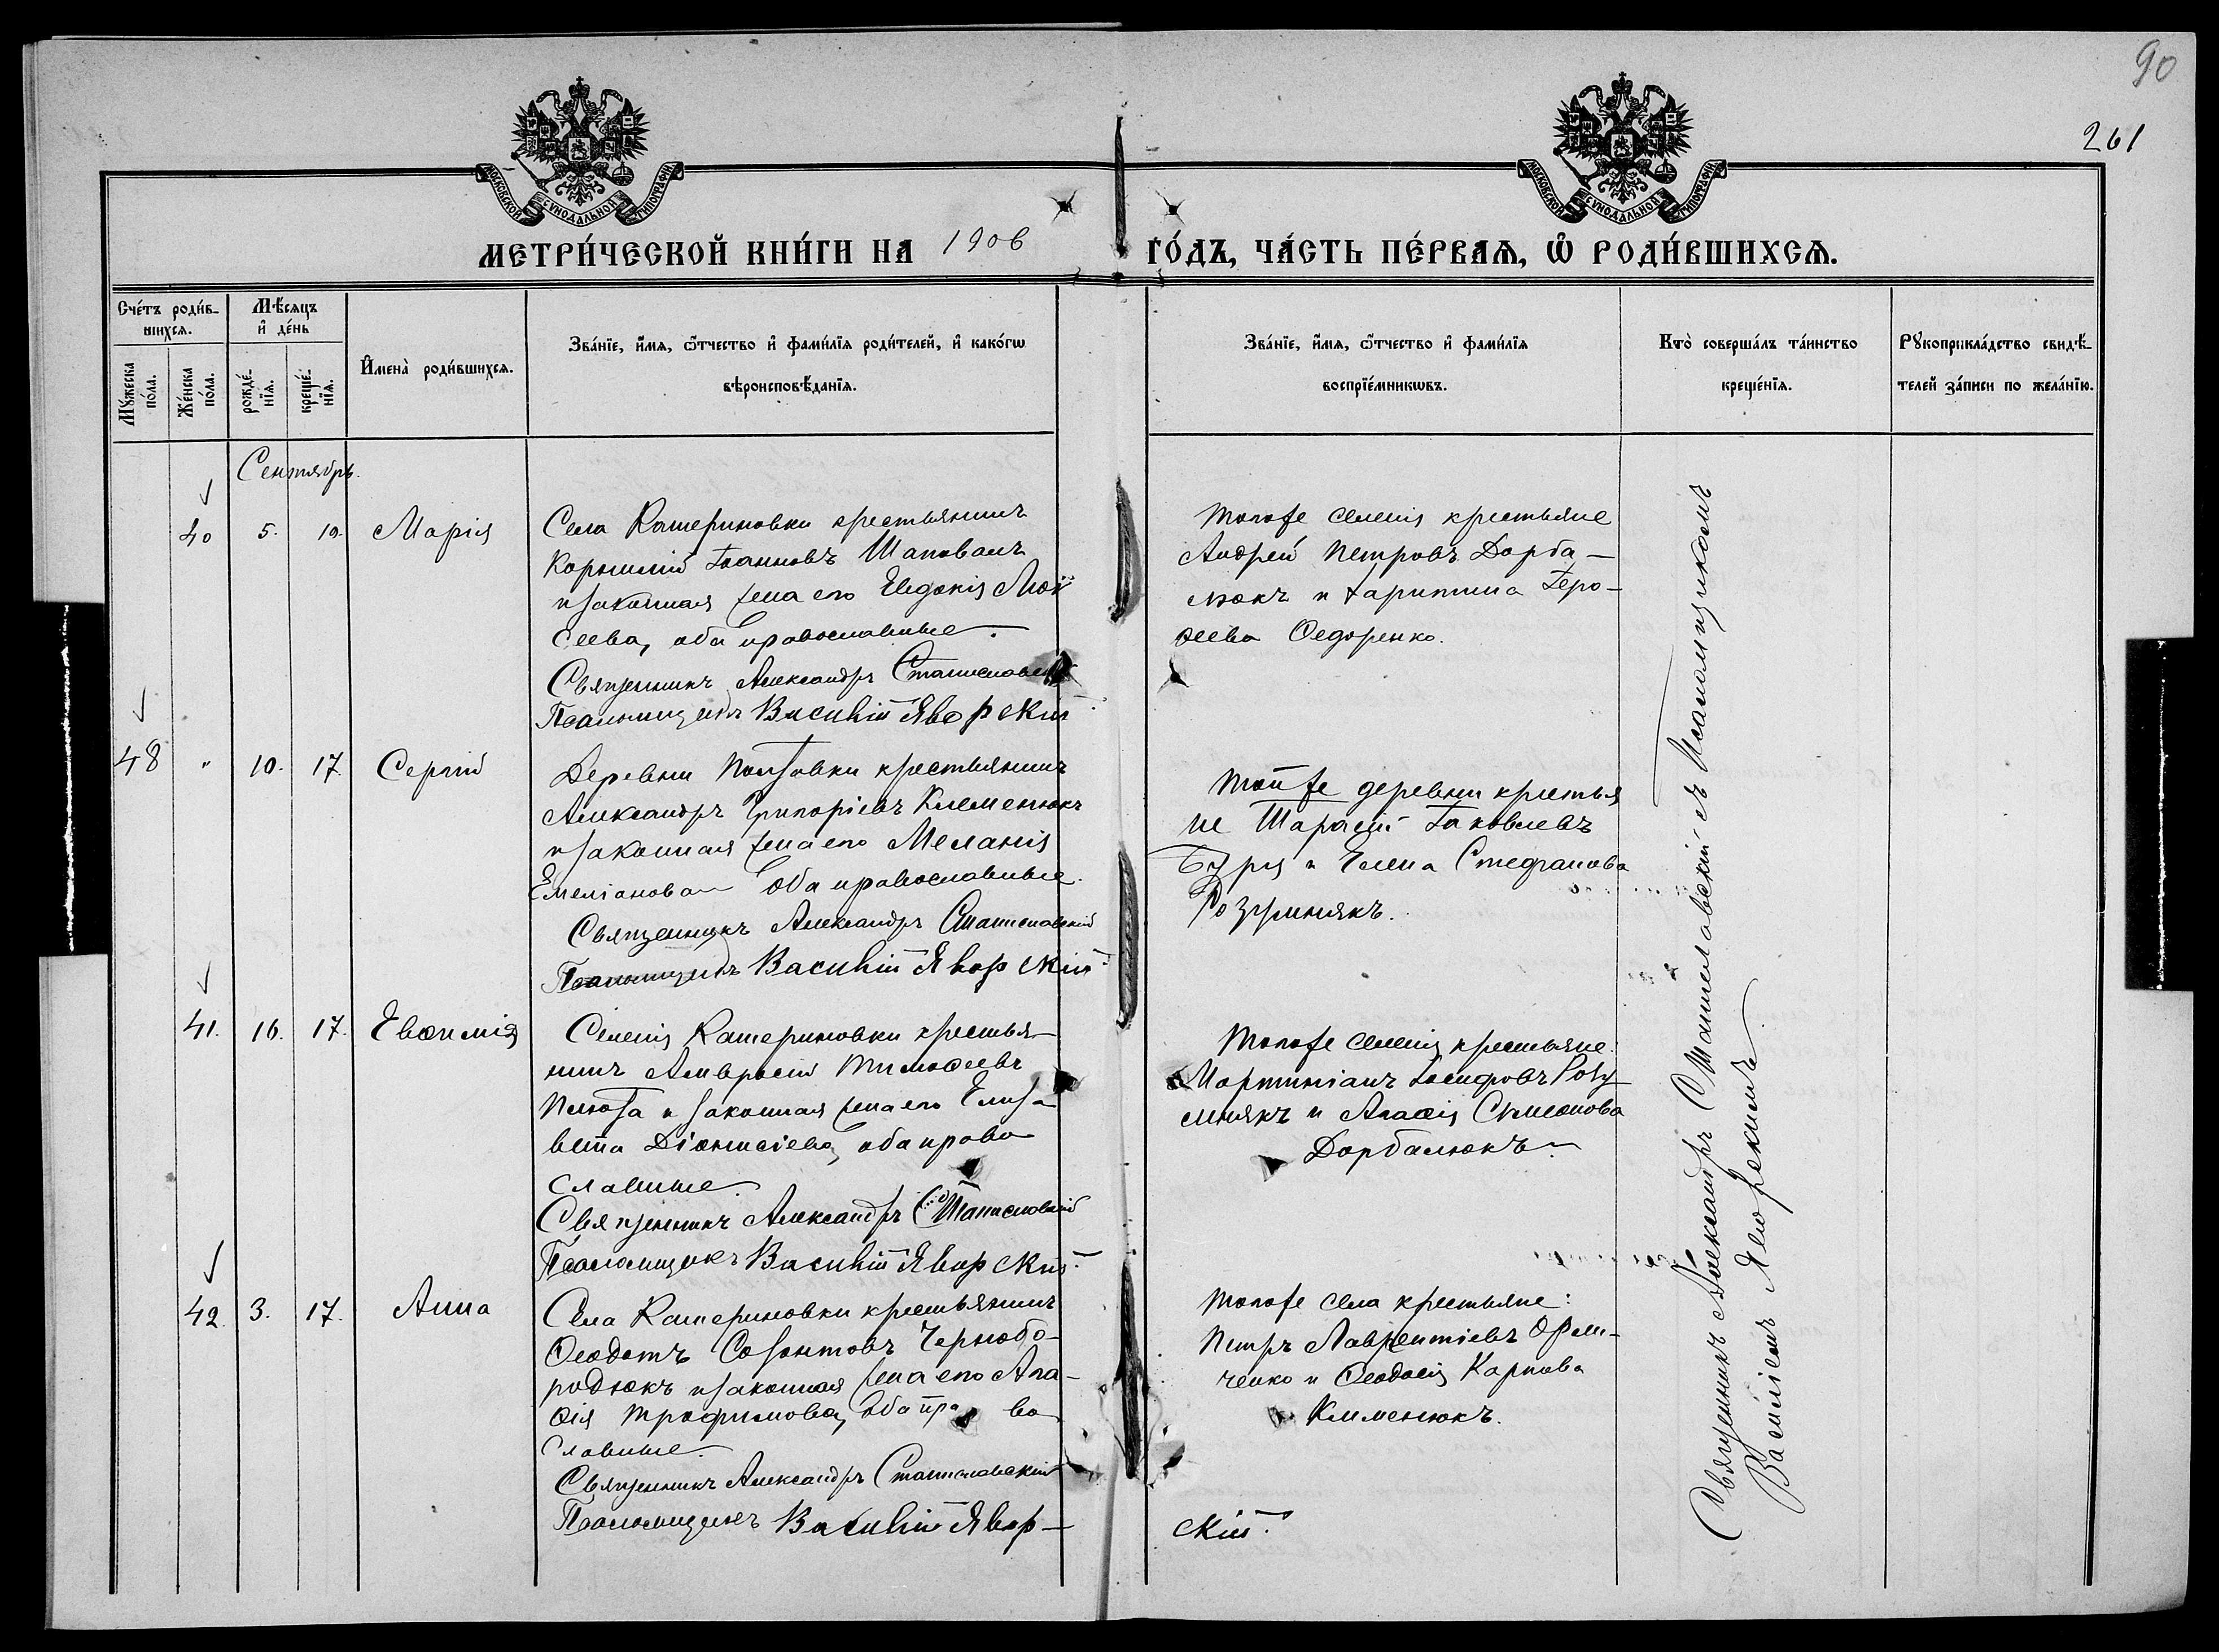 90
261
МОСКОВСКОЙ СУНОДАЛЬНОЙ ТИПОГРАФІИ
МОСКОВСКОЙ СУНОДАЛЬНОЙ ТИПОГРАФІИ
МЕТРИ́ЧЕСКОЙ КНИ́ГИ НА 1906 ГО́ДЪ, ЧА́СТЬ ПЕ́РВАѦ, Ѿ РОДИ́ВШИХСѦ.
Сче́тъ роди́в-
шихсѧ.
Мꙋжеска по́ла.
Же́нска по́ла.
Мѣ́сяцъ
и҆ де́нь
рожде́-
нїѧ.
креще́-
нїѧ.
И҆мена̀ роди́вшихсѧ.
Зва́нїе, и҆́мѧ, ѻ҆́тчество и҆ фами́лїѧ роди́телей, и҆ како́гѡ
вѣроисповѣ́данїѧ.
Зва́нїе, и҆́мѧ, ѻ҆́тчество и҆ фами́лїѧ
воспрїе́мникѡвъ.
Кто̀ соверша́лъ та́инство
креще́нїѧ.
Рꙋкоприкла́дство свидѣ́-
телей за́писи по жела́нїю.
Сентябрь.
40 5. 10. Марія
Села Катериновки крестьянинъ
Корнилій Іоанновъ Шаповалъ
и законная жена его Евдокія Мой
сеева, оба православные.
Священникъ Александръ Станиславскій
Псаломщикъ Василій Яворскій
Тогоже селенія крестьяне
Андрей Петровъ Дорба-
люкъ и Харитина Геро-
ѳеева Ѳедоренко.
48 " 10. 17. Сергій
Деревни Понзовки крестьянинъ
Александръ Григоріевъ Клеменюкъ
и законная жена его Меланія
Емеліанова оба православные.
Священникъ Александръ Станиславскій
Псаломщикъ Василій Яворскій
Той же деревни крестья
не Тарасій Іаковлевъ
Буря и Елена Стефанова
Розумнякъ.
41. 16. 17. Евѳимія
Селенія Катериновки крестья-
нинъ Амвросій Тимоѳеевъ
и законная жена его Елиза
вета Діонисіева, оба право
славные.
Священникъ Александръ Станиславскій
Псаломщикъ Василій Яворскій
Тогоже селенія крестьяне:
Мартиніанъ Іосифовъ Розу
мнякъ и Агаѳія Симеонова
Дорбалюкъ.
42. 3. 17. Анна
Села Катериновки крестьянинъ
Ѳеодотъ Созонтовъ Чернобо-
родюкъ и законная жена его Ага-
ѳія Трофимова, оба право
славные.
Священникъ Александръ Станиславскій
Псаломщикъ Василій Явор-
скій.
Тогоже села крестьяне:
Петръ Лаврентіевъ
ченко и Ѳеодосія Карпова
Клименюкъ.
Священникъ Александръ Станиславскій съ Псаломщикомъ
Василіемъ